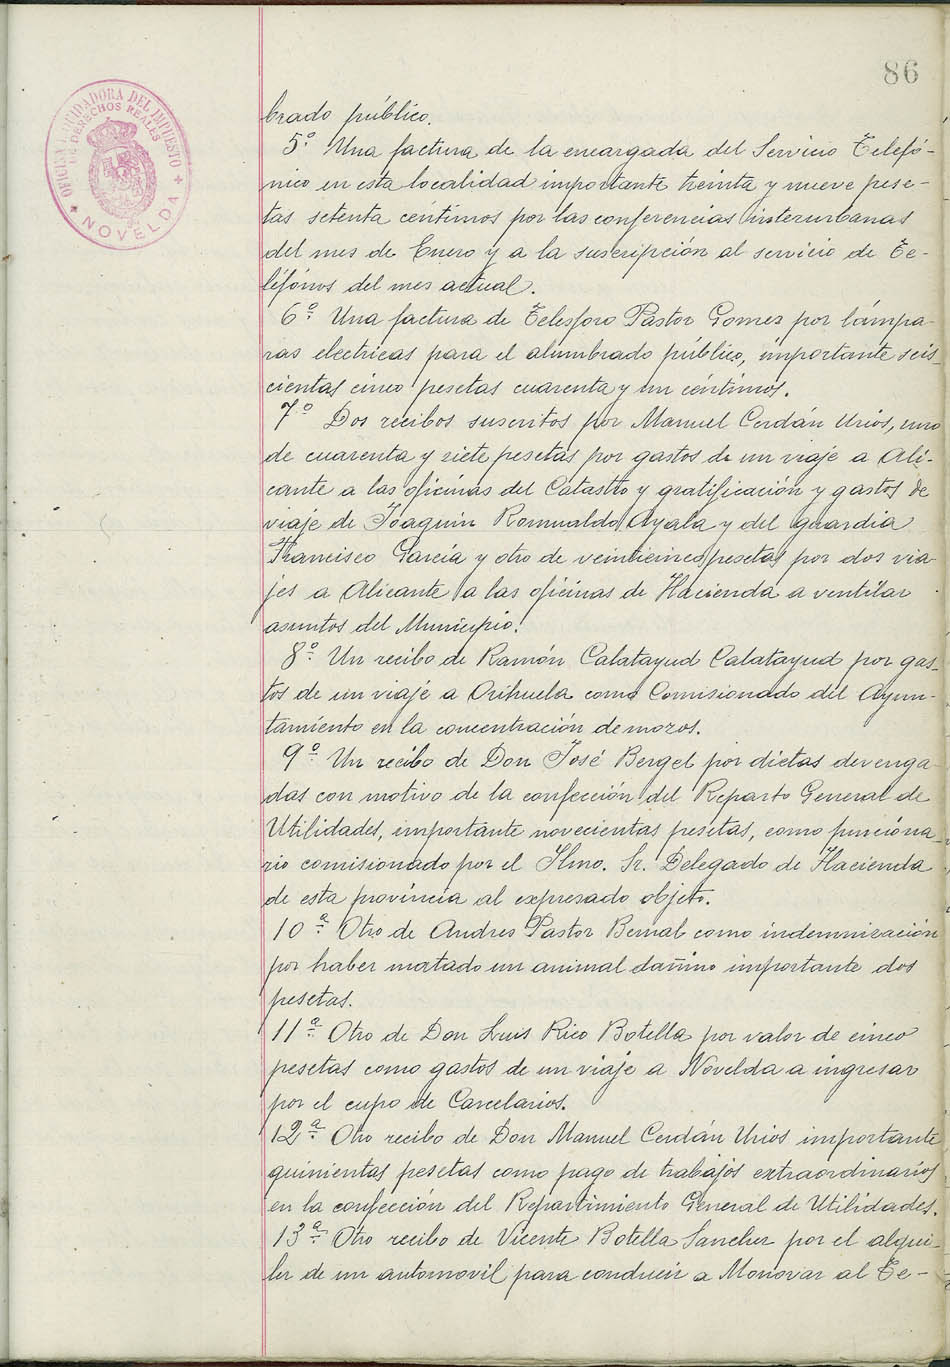 86
OFICINA LIQUIDADORA DEL IMPUESTO
DE DERECHOS REALES
NOVELDA
brado público.
5º. Una factura de la encargada del Servicio Telefó-
nico en esta localidad importante treinta y nueve pese-
tas setenta centimos por las conferencias interurbanas
del mes de Enero y a la suscripción al servicio de Te-
léfonos del mes actual.
6º. Una factura de Telesforo Pastor Gomez por lámpa-
ras electricas para el alumbrado público, importante seis-
cientas cinco pesetas cuarenta y un céntimos.
7º Dos recibos suscritos por Manuel Cerdán Urios, uno
de cuarenta y siete pesetas por gastos de un viaje a Ali-
cante a las oficinas del Catastro y gratificación y gastos de
viaje de Joaquin Romualdo Ayala y del guardia
Francisco García y otro de veinticinco pesetas por dos via-
jes a Alicante a las oficinas de Hacienda a ventilar
asuntos del Municipio.
8º. Un recibo de Ramón Calatayud Calatayud por gas-
tos de un viaje a Orihuela como Comisionado del Ayun-
tamiento en la concentración de mozos.
9º. Un recibo de Don José Berget por dietas devenga-
das con motivo de la confección del Reparto General de
Utilidades, importante novecientas pesetas, como funciona-
rio comisionado por el Ilmo. Sr. Delegado de Hacienda
de esta provincia al expresado objeto.
10ª. Otro de Andres Pastor Bernab como indemnización
por haber matado un animal dañino importante dos
pesetas.
11ª. Otro de Don Luis Rico Botella por valor de cinco
pesetas como gastos de un viaje a Novelda a ingresar
por el cupo de Carcelarios.
12ª. Otro recibo de Don Manuel Cerdán Urios importante
quinientas pesetas como pago de trabajos extraordinarios
en la confección del Repartimiento General de Utilidades.
13ª. Otro recibo de Vicente Botella Sanchez por el alqui-
ler de un automovil para conducir a Monovar al Te-